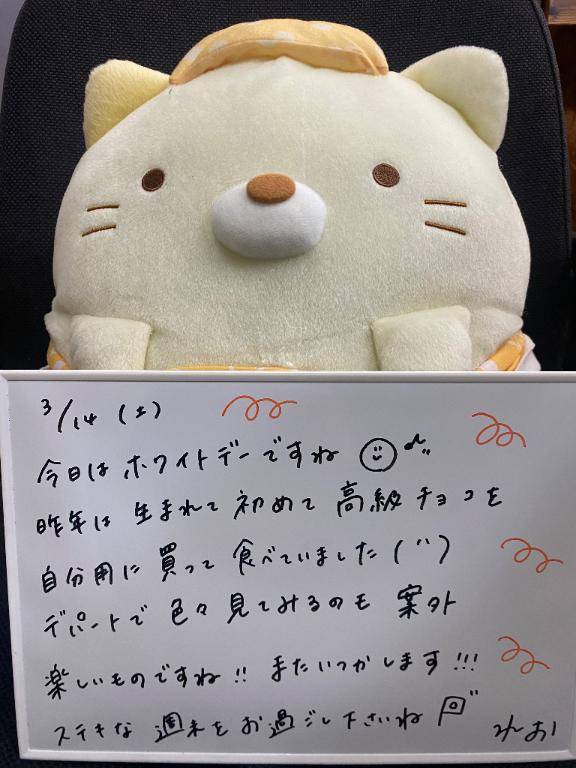 3/14 (土)
今日は ホワイトデーですね
昨年は 生まれて初めて 高級チョコを
自分用に 買って 食べていました(¨)
デパートで 色々見てみるのも 案外
楽しいものですね!! またいつかします!!!
ステキな 週末を お過ごし下さいね